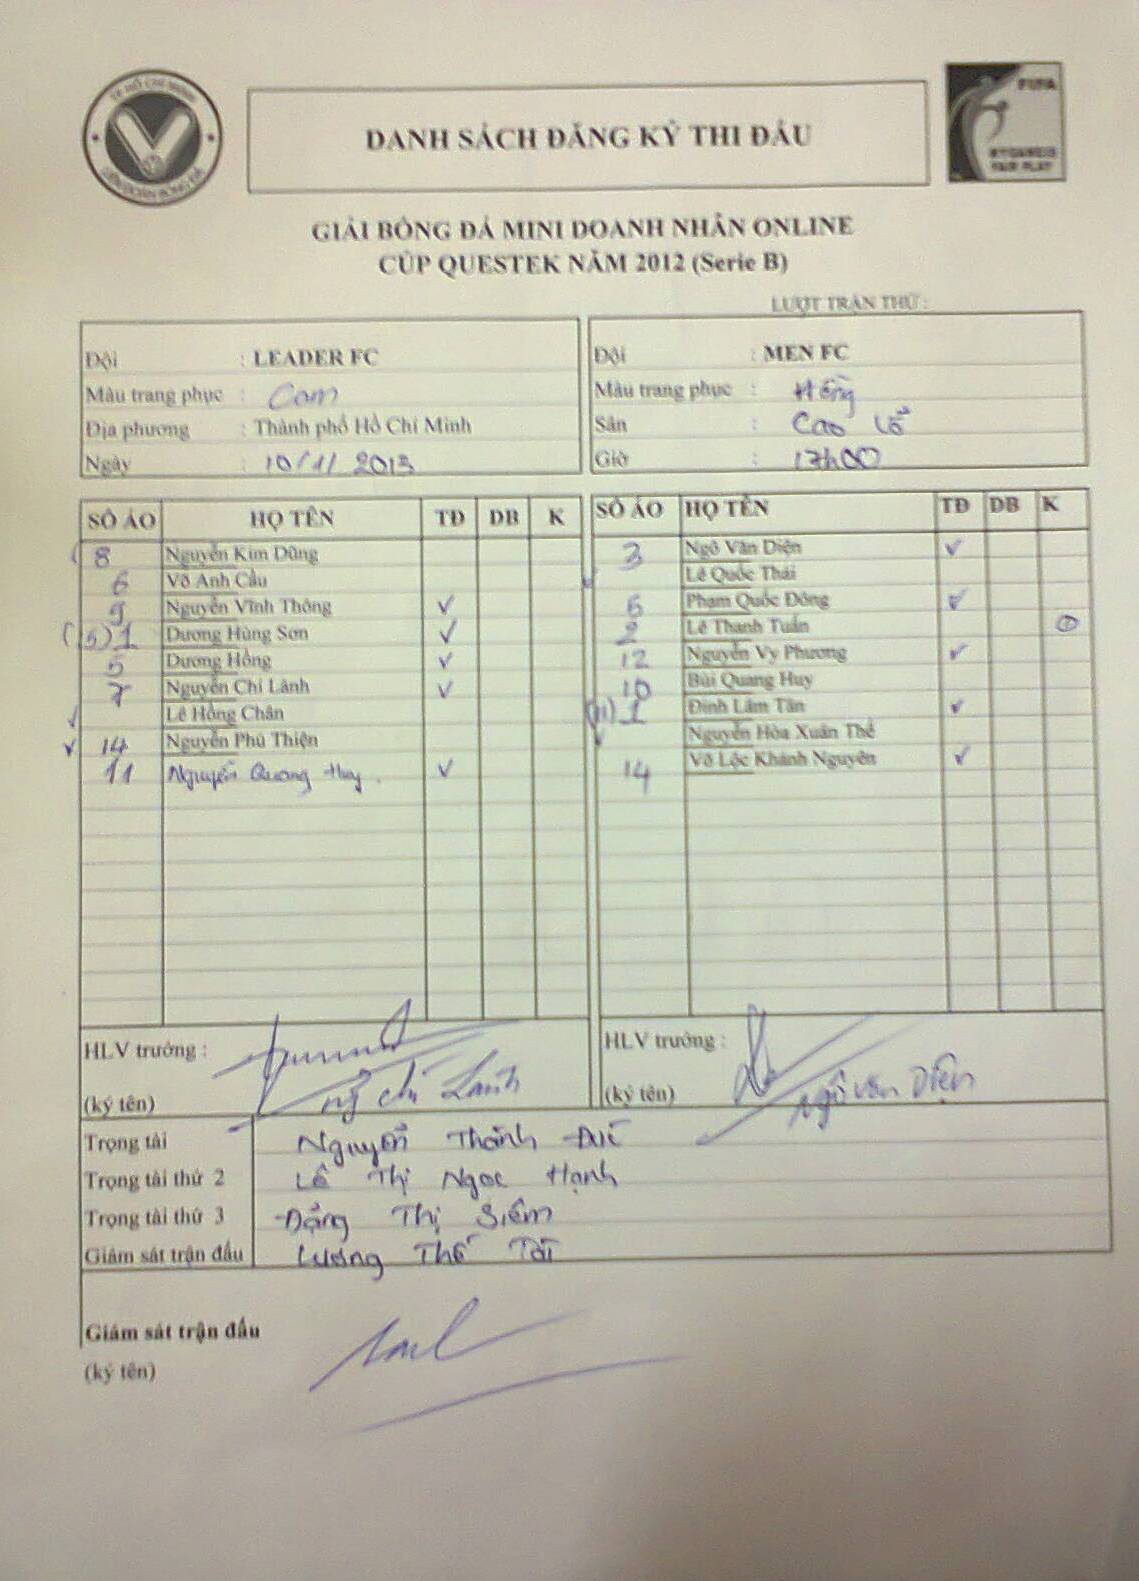 TP HỒ CHÍ MINH
LIÊN ĐOÀN BÓNG ĐÁ
FIFA
FAIR PLAY
DANH SÁCH ĐĂNG KÝ THI ĐẤU
GIẢI BÓNG ĐÁ MINI DOANH NHÂN ONLINE
CÚP QUESTEK NĂM 2012 (Serie B)
LƯỢT TRẬN THỨ :
Đội : LEADER FC
Màu trang phục : Cam
Địa phương : Thành phố Hồ Chí Minh
Ngày : 10/11/2013
Đội : MEN FC
Màu trang phục : Hồng
Sân : Cao Lỗ
Giờ : 17h00
SỐ ÁO HỌ TÊN TĐ DB K
8 Nguyễn Kim Dũng
6 Võ Anh Cầu
9 Nguyễn Vĩnh Thông ✓
(5) 1 Dương Hùng Sơn ✓
5 Dương Hồng ✓
7 Nguyễn Chí Lãnh ✓
✓ Lê Hồng Chân
✓ 14 Nguyễn Phú Thiện
11 Nguyễn Quang Huy ✓
SỐ ÁO HỌ TÊN TĐ DB K
3 Ngô Văn Diện ✓
Lê Quốc Thái
6 Phạm Quốc Đông ✓
2 Lê Thanh Tuấn
12 Nguyễn Vy Phương ✓
10 Bùi Quang Huy
(11) 1 Đinh Lâm Tân ✓
✓ Nguyễn Hòa Xuân Thể
14 Võ Lộc Khánh Nguyên ✓
HLV trưởng :
(ký tên) Ng Chí Lanh
HLV trưởng :
(ký tên) Ngô Văn Diện
Trọng tài Nguyễn Thành Đức
Trọng tài thứ 2 Lê Thị Ngọc Hạnh
Trọng tài thứ 3 Đặng Thị Siêm
Giám sát trận đấu Lương Thế Tài
Giám sát trận đấu
(ký tên)